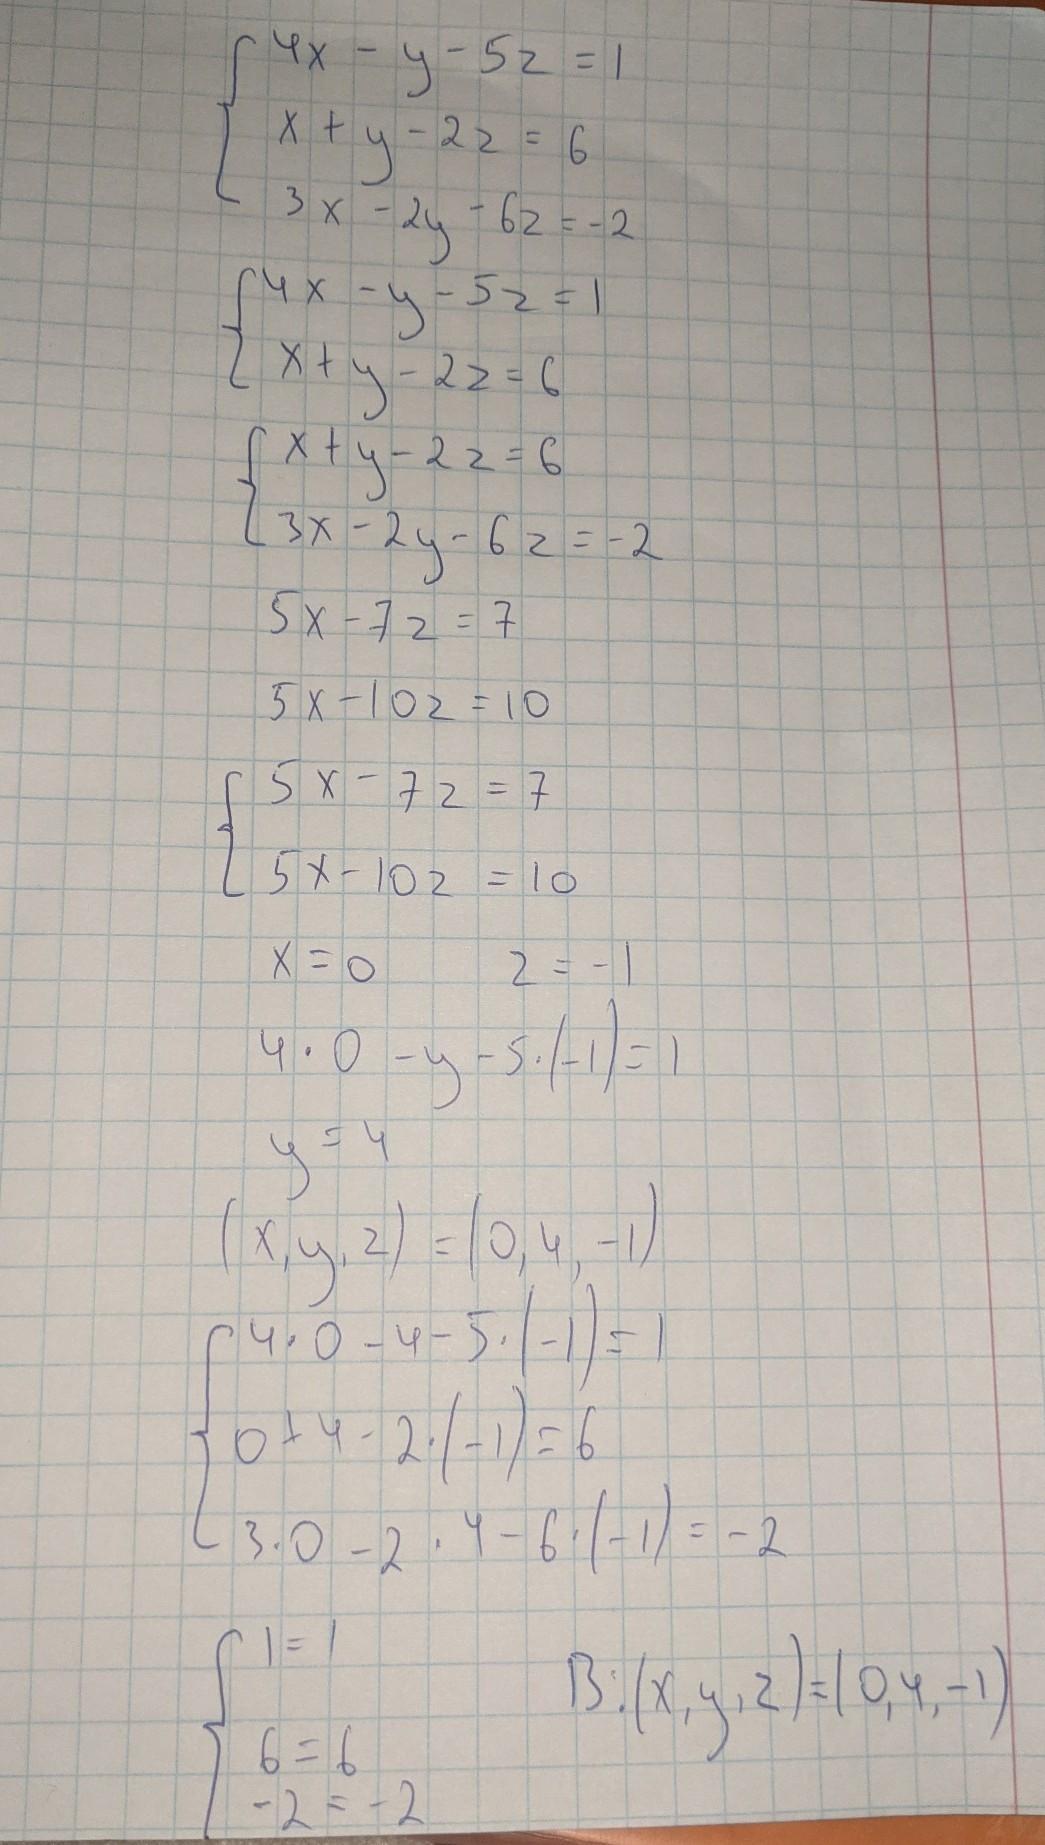 4x - y - 5z = 1
x + y - 2z = 6
3x - 2y - 6z = -2
4x - y - 5z = 1
x + y - 2z = 6
x + y - 2z = 6
3x - 2y - 6z = -2
5x - 7z = 7
5x - 10z = 10
5x - 7z = 7
5x - 10z = 10
x = 0 z = -1
4 · 0 - y - 5 · (-1) = 1
y = 4
(x, y, z) = (0, 4, -1)
4 · 0 - 4 - 5 · (-1) = 1
0 + 4 - 2 · (-1) = 6
3 · 0 - 2 · 4 - 6 · (-1) = -2
1 = 1
В: (x, y, z) = (0, 4, -1)
6 = 6
-2 = -2